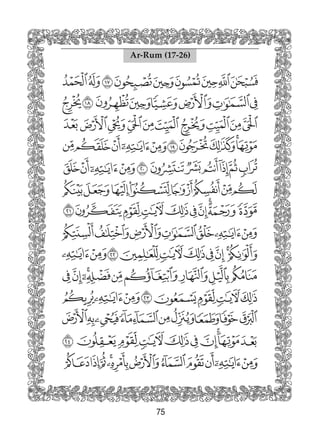 Ar-Rum (17-26)
فَسُبْحَٰنَ ٱللَّهِ حِينَ تُمْسُونَ وَحِينَ تُصْبِحُونَ ١٧ وَلَهُ ٱلْحَمْدُ
فِى ٱلسَّمَٰوَٰتِ وَٱلْأَرْضِ وَعَشِيًّا وَحِينَ تُظْهِرُونَ ١٨ يُخْرِجُ
ٱلْحَىَّ مِنَ ٱلْمَيِّتِ وَيُخْرِجُ ٱلْمَيِّتَ مِنَ ٱلْحَىِّ وَيُحْىِ ٱلْأَرْضَ بَعْدَ
مَوْتِهَا وَكَذَٰلِكَ تُخْرَجُونَ ١٩ وَمِنْ ءَايَٰتِهِۦٓ أَنْ خَلَقَكُم مِّن
تُرَابٍ ثُمَّ إِذَآ أَنتُم بَشَرٌ تَنتَشِرُونَ ٢٠ وَمِنْ ءَايَٰتِهِۦٓ أَنْ خَلَقَ
لَكُم مِّنْ أَنفُسِكُمْ أَزْوَٰجًا لِّتَسْكُنُوٓا۟ إِلَيْهَا وَجَعَلَ بَيْنَكُم
مَّوَدَّةً وَرَحْمَةً إِنَّ فِى ذَٰلِكَ لَءَايَٰتٍ لِّقَوْمٍ يَتَفَكَّرُونَ ٢١
وَمِنْ ءَايَٰتِهِۦ خَلْقُ ٱلسَّمَٰوَٰتِ وَٱلْأَرْضِ وَٱخْتِلَٰفُ أَلْسِنَتِكُمْ
وَأَلْوَٰنِكُمْ إِنَّ فِى ذَٰلِكَ لَءَايَٰتٍ لِّلْعَٰلِمِينَ ٢٢ وَمِنْ ءَايَٰتِهِۦ
مَنَامُكُم بِٱلَّيْلِ وَٱلنَّهَارِ وَٱبْتِغَآؤُكُم مِّن فَضْلِهِۦٓ إِنَّ فِى
ذَٰلِكَ لَءَايَٰتٍ لِّقَوْمٍ يَسْمَعُونَ ٢٣ وَمِنْ ءَايَٰتِهِۦ يُرِيكُمُ
ٱلْبَرْقَ خَوْفًا وَطَمَعًا وَيُنَزِّلُ مِنَ ٱلسَّمَآءِ مَآءً فَيُحْىِۦ بِهِ ٱلْأَرْضَ
بَعْدَ مَوْتِهَآ إِنَّ فِى ذَٰلِكَ لَءَايَٰتٍ لِّقَوْمٍ يَعْقِلُونَ ٢٤
وَمِنْ ءَايَٰتِهِۦٓ أَن تَقُومَ ٱلسَّمَآءُ وَٱلْأَرْضُ بِأَمْرِهِۦ ثُمَّ إِذَا دَعَاكُمْ
75